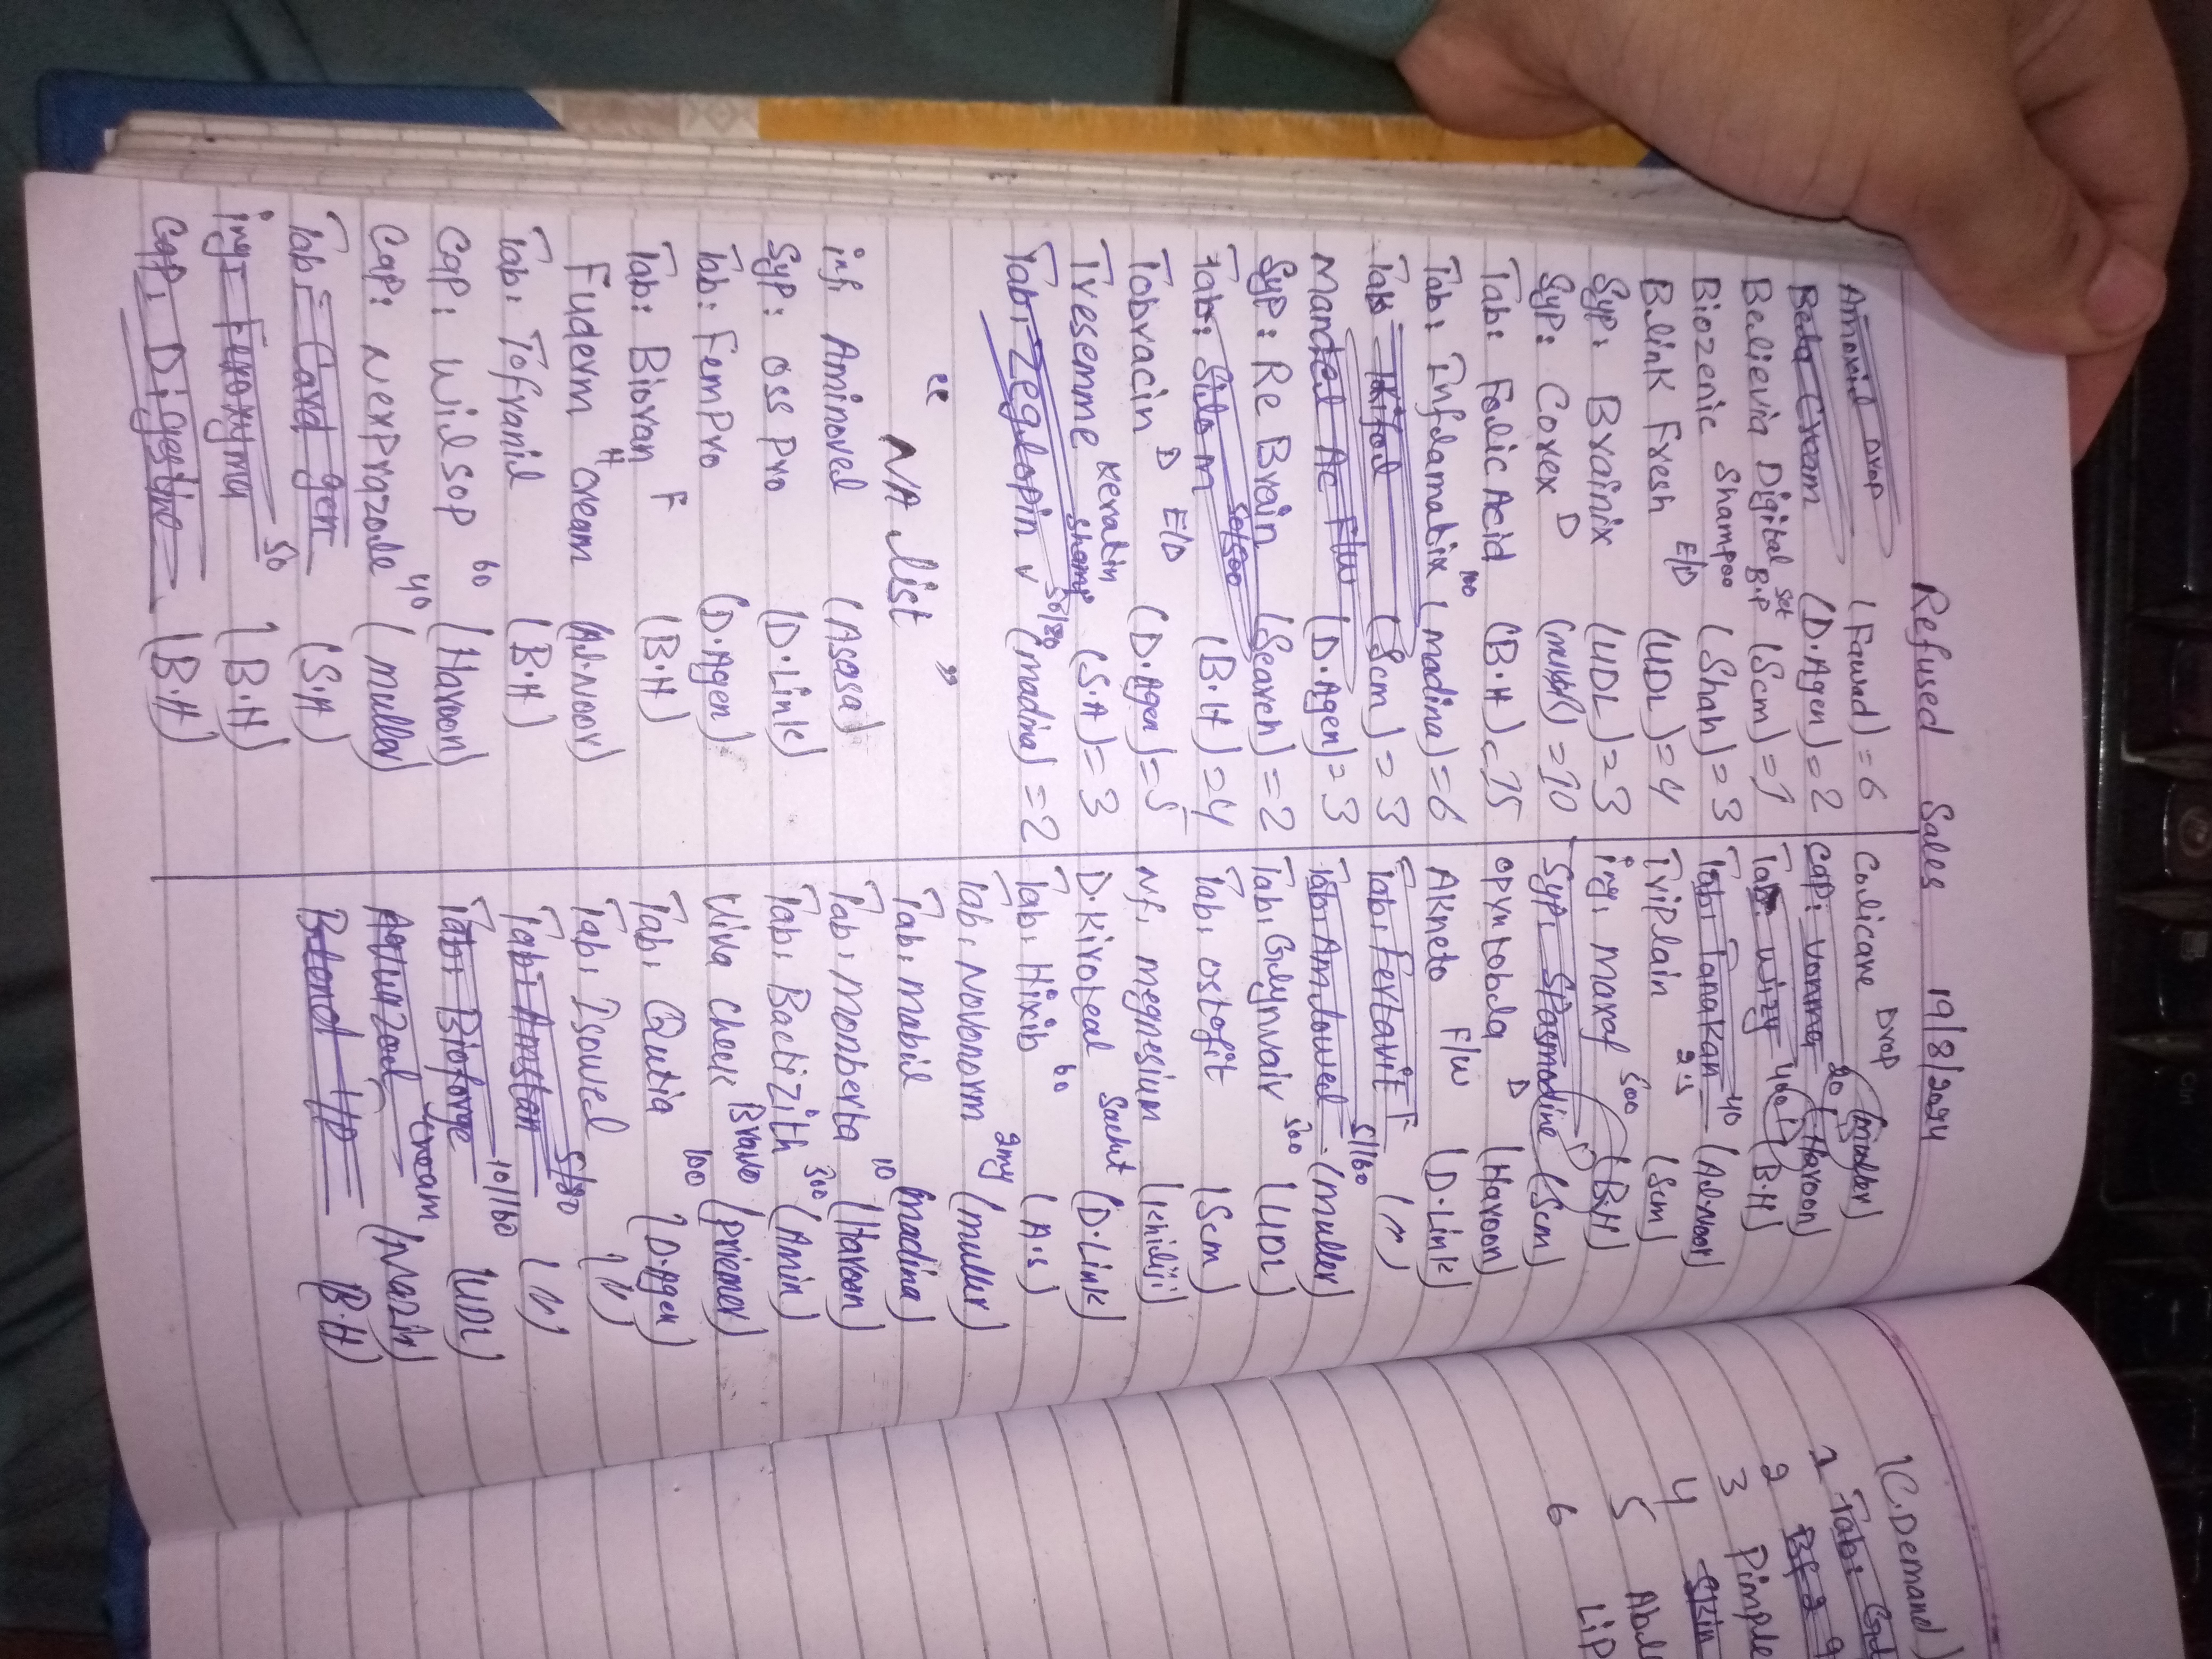 Refused Sales 19/8/2024
Amoxil Drop (Fawad) = 6
Beta Cream (D.Agen) = 2
Believia Digital B.P Set (Scm) = 1
Biozenic Shampoo (Shah) = 3
Blink Fresh E/D (UDL) = 4
Syp: Brainix (UDL) = 3
Syp: Corex D = 10
Tab: Folic Acid (B.H) = 15
Tab: Inflamatix 100 (madina) = 6
Tab (Scm) = 3
Mandel Ac F/w (D.Agen) = 3
Syp: Re Brain (Search) = 2
Tab: Silo m 50/500 (B.H) = 4
Tobracin D E/D (D.Agen) = 5
Tresemme Keratin Shamp (S.A) = 3
Tab: Zeglopin v (madina) = 2
" NA list "
inf. Aminovel (Asasa)
Syp: Oss Pro (D.Link)
Tab: Fem Pro (D.Agen)
Tab: Biovan F (B.H)
Fuderm H Cream (Al.Noor)
Tab: Tofranil (B.H)
Cap: Wilsop 60 (Haroon)
Cap: Nexprazole 40 (muller)
Tab: Card gen (S.A)
inj: 50 (B.H)
Cap: Digestine (B.H)
Calicare Drop (muller)
Cap: 20 (Haroon)
Tab: Wizy 40 (B.H)
Tab: Tanakan 40 (Al.Noor)
Triplain 2.5 (Scm)
inj: Maxaf 500 (B.H)
Syp: Spasmodine (Scm)
Opyntobda D (Haroon)
Akneto F/w (D.Link)
Tab: Fertavit F (")
Tab: Amlowel 5/160 (muller)
Tab: Glynvair 500 (UDL)
Tab: Ostofit (Scm)
Nf: megnesium (Khiliji)
D.Kiroteal Sachet (D.Link)
Tab: Hixib 60 (A.S)
Tab: Novonorm 2mg (muller)
Tab: mabil (madina)
Tab: Monberta 10 (Haroon)
Tab: Bactizith 500 (Amin)
Viva Check Bravo (Priemer)
Tab: Qutia 100 (D.Agen)
Tab: Isowel (")
Tab: Amstan 5/80 (")
Tab: Bioforge 10/160 (UDL)
Cream (Nazir)
B.H)
(C.Demand)
1 Tab:
2
3 Pimple
4 Skin
5
6 Lip